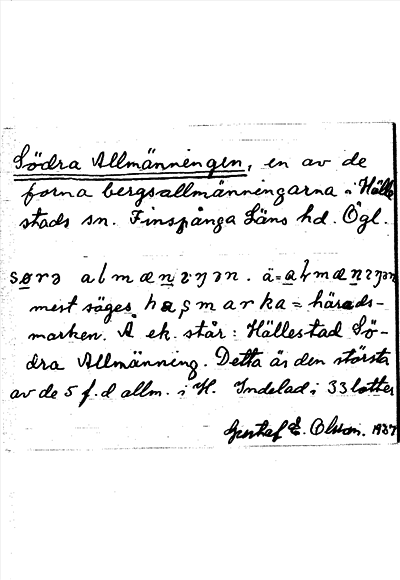 Södra Allmänningen, en av de
forna bergsallmänningarna i Hälle
stads sn. Finspånga Läns hd. Ögl.
sørə almænıŋən. ä=almænıŋən
mest säges haşmarka = härads-
marken. A ek. står: Hällestad Sö-
dra Allmänning. Detta är den största
av de 5 f.d allm. i H. Indelad i 33 lotter
Gustaf E. Olsson. 1937